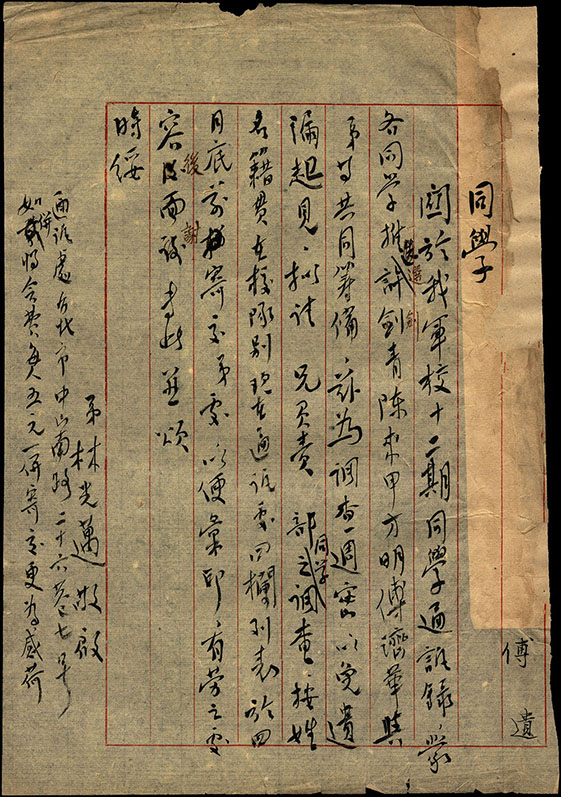 傅 遺
同學
關於我軍校十二期同學通訊錄,蒙
各同學推選劍青陳東甲方明傅濟華與
弟等共同籌備,茲為調查週密以免遺
漏起見,擬請 兄負責 部之同學調查,按姓
名籍貫在校隊別現在通訊處四欄列表於四
月底前寄交弟處以便彙印,有勞之處
容後面謝專此並頌
時綏
弟林光邁敬啟
通訊處台北市中山南路二十六巷七號
如併將會費每人五元一併寄交更為感荷